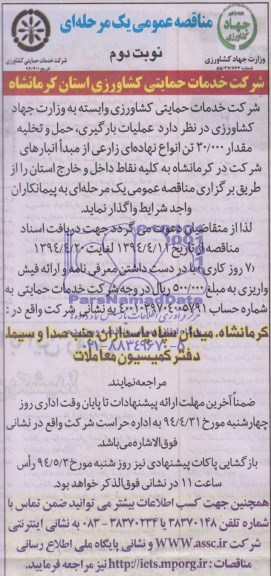 مناقصه عمومی یک مرحله‌ای
نوبت دوم
جهاد
کشاورزی
وزارت جهاد کشاورزی
شرکت خدمات حمایتی کشاورزی
شرکت خدمات حمایتی کشاورزی استان کرمانشاه
شرکت خدمات حمایتی کشاورزی وابسته به وزارت جهاد
کشاورزی در نظر دارد عملیات بارگیری، حمل و تخلیه
مقدار ۳۰/۰۰۰ تن انواع نهاده‌های زراعی از مبدأ انبارهای
شرکت در کرمانشاه به کلیه نقاط داخل و خارج استان را از
طریق برگزاری مناقصه عمومی یک مرحله‌ای به پیمانکاران
واجد شرایط واگذار نماید.
لذا از متقاضیان دعوت می گردد جهت دریافت اسناد
مناقصه از تاریخ ۱۳۹۴/۴/۱۱ لغایت ۱۳۹۴/۴/۲۰
(۷ روز کاری) با در دست داشتن معرفی نامه و ارائه فیش
واریزی به مبلغ ۵۰۰/۰۰۰ ریال در وجه شرکت خدمات حمایتی به
شماره حساب به نشانی شرکت واقع در :
ParsNamadData
۰۲۱-۸۸۳۴۹۶۷۰-۵
کرمانشاه، میدان سپاه پاسداران جنب صدا و سیما.
دفتر کمیسیون معاملات
مراجعه نمایند.
ضمناً آخرین مهلت ارائه پیشنهادات تا پایان وقت اداری روز
چهارشنبه مورخ ۹۴/۴/۳۱ به اداره حراست شرکت واقع در نشانی
فوق‌الاشاره می‌باشد.
بازگشایی پاکات پیشنهادی نیز روز شنبه مورخ ۹۴/۵/۳ رأس
ساعت ۱۱ در نشانی فوق‌الذکر خواهد بود.
همچنین جهت کسب اطلاعات بیشتر می توانید ضمن تماس با
شماره تلفن ۳۸۳۷۰۱۴۸ و ۳۸۳۷۰۲۳۴ - ۰۸۳ به نشانی اینترنتی
شرکت WWW.assc.ir و نشانی پایگاه ملی اطلاع رسانی
مناقصات : http://iets.mporg.ir نیز مراجعه فرمایید.